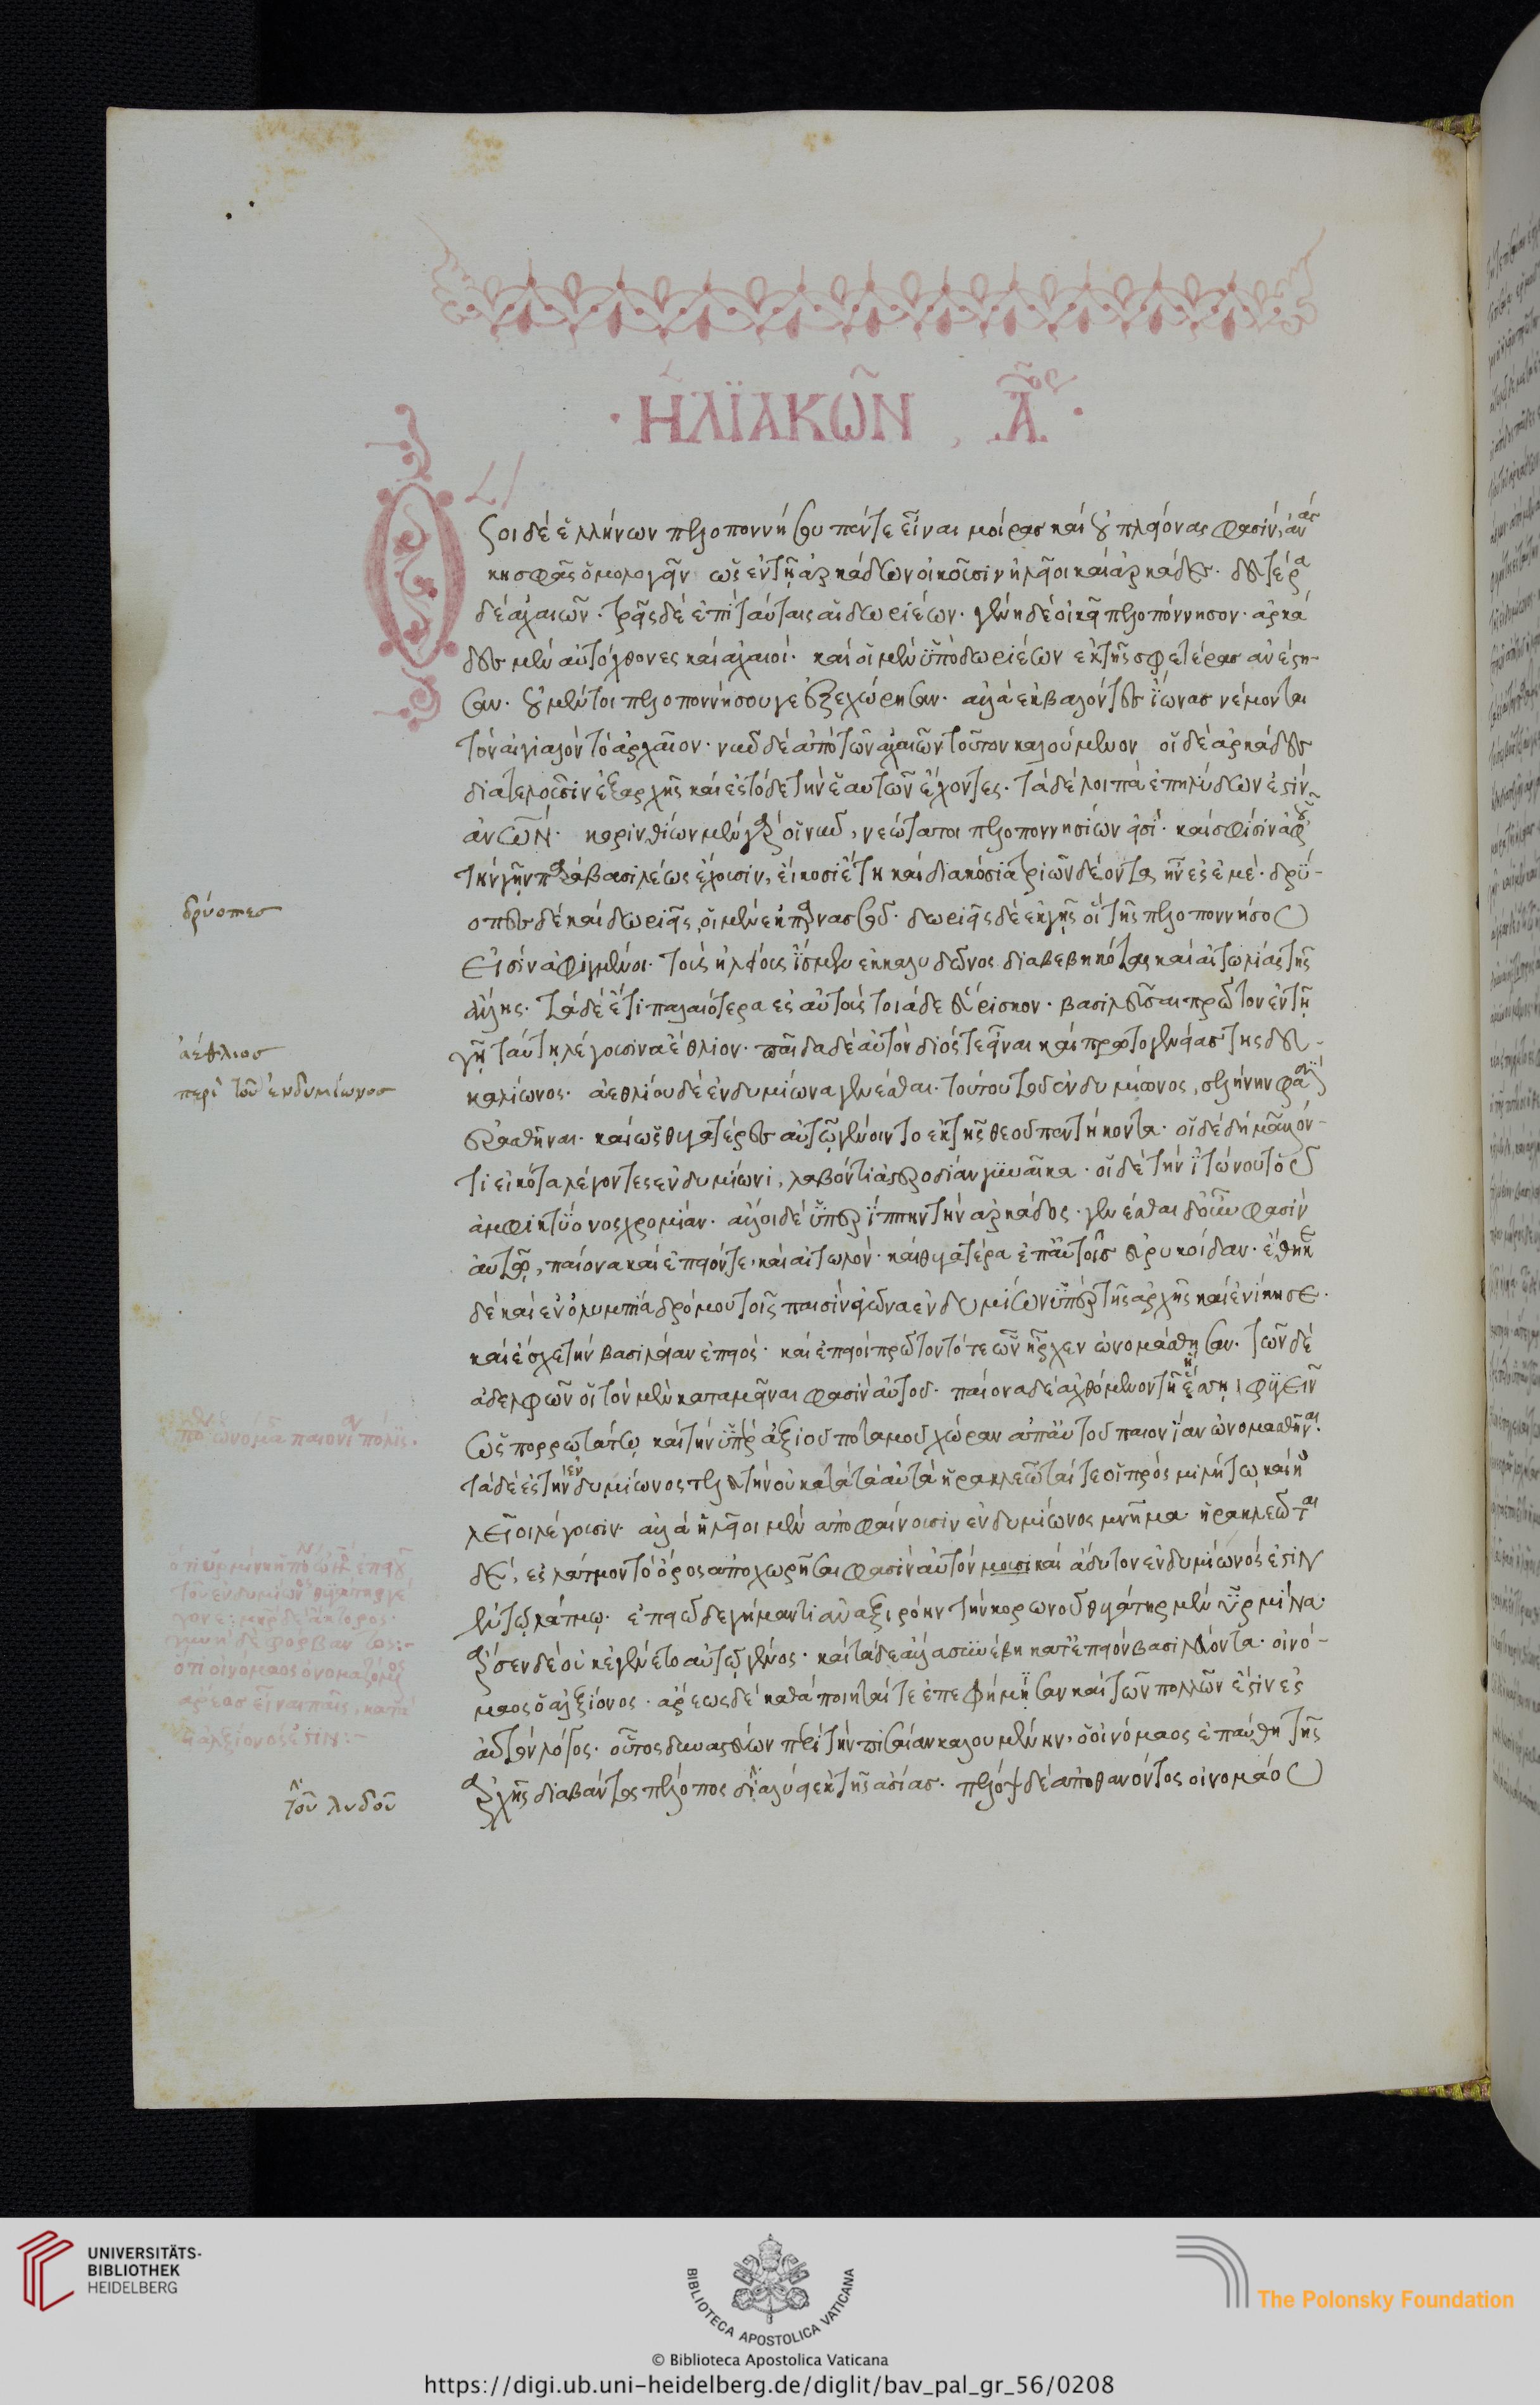 · ἨΛΪΑΚΩ͂Ν , Α^ος ·
Ὅσοι δὲ ἑλλήνων πελοποννήσου πέντε εἶναι μοίρας καὶ οὐ πλείονας φασίν, ἀνάγ
κη σφᾶς ὁμολογεῖν ὡς ἐν τῇ ἀρκάδων οἰκοῦσιν ἠλεῖοι καὶ ἀρκάδες. δευτέρα
δὲ ἀχαιῶν. τρεῖς δὲ ἐπὶ ταύταις αἱ δωριέων. γένη δὲ οἰκεῖ πελοπόννησον. ἀρκά
δες μὲν αὐτόχθονες καὶ ἀχαιοί. καὶ οἱ μὲν ὑπὸ δωριέων ἐκ τῆς σφετέρας ἀνέστη-
σαν. οὐ μέντοι πελοποννήσου γε ἐξεχώρησαν. ἀλλὰ ἐκβαλόντες ἴωνας νέμονται
τὸν αἰγιαλὸν τὸ ἀρχαῖον. νῦν δὲ ἀπὸ τῶν ἀχαιῶν τοῦτον καλούμενον οἱ δὲ ἀρκάδες
διατελοῦσιν ἐξ ἀρχῆς καὶ ἐς τόδε τὴν ἑαυτῶν ἔχοντες. τὰ δὲ λοιπὰ ἐπηλύδων ἐστὶν
ἀνῶν. κορινθίων μὲν γὰρ οἱ νῦν, νεώτατοι πελοποννησίων εἰσί. καὶ σφίσιν ἀφ' οὗ
τὴν γῆν παρὰ βασιλέως ἔχουσιν, εἴκοσι ἔτη καὶ διακόσια τριῶν δέοντα ἦν ἐς ἐμέ. δρύ-
οπες δὲ καὶ δωριεῖς, οἱ μὲν ἐκ παρνασοῦ. δωριεῖς δὲ ἐκ γῆς οἱ τῆς πελοποννήσου
εἰσὶν ἀφιγμένοι. τοὺς ἠλείους ἴσμεν ἐκ καλυδῶνος διαβεβηκότας καὶ αἰτωλίας τῆς
ἄλλης. τὰ δὲ ἔτι παλαιότερα ἐς αὐτοὺς τοιάδε εὕρισκον. βασιλεῦσαι πρῶτον ἐν τῇ
γῇ ταύτῃ λέγουσιν ἀέθλιον. παῖδα δὲ αὐτὸν διός τε εἶναι καὶ πρωτογενείας τῆς δευ-
καλίωνος. ἀεθλίου δὲ ἐνδυμίωνα γενέσθαι. τούτου τοῦ ἐνδυμίωνος, σελήνην φασὶν
ἐρασθῆναι. καὶ ὡς θυγατέρες αὐτῷ γένοιντο ἐκ τῆς θεοῦ πεντήκοντα. οἱ δὲ δὴ μᾶλλόν-
τι εἰκότα λέγοντες ἐνδυμίωνι, λαβόντι ἀστεροδίαν γυναῖκα. οἱ δὲ τὴν ἰτώνου τοῦ
ἀμφικτύονος χρομίαν. ἄλλοι δὲ ὑπερίππην τὴν ἀρκάδος. γενέσθαι δ' οὖν φασὶν
αὐτῷ, παίονα καὶ ἐπειόν τε, καὶ αἰτωλόν. καὶ θυγατέρα ἐπ' αὐτοῖς εὐρυκύδαν. ἔθηκε
δὲ καὶ ἐν ὀλυμπίᾳ δρόμου τοῖς παισὶν ἀγῶνα ἐνδυμίων ὑπὲρ τῆς ἀρχῆς καὶ ἐνίκησε.
καὶ ἔσχε τὴν βασιλείαν ἐπειός. καὶ ἐπειοὶ πρῶτον τότε ὧν ἦρχεν ὠνομάσθησαν. τῶν δὲ
ἀδελφῶν οἱ τὸν μὲν καταμεῖναι φασὶν αὐτοῦ. παίονα δὲ ἀχθόμενον τῇ ἥσσῃ, φυγεῖν
ὡς πορρωτάτω καὶ τὴν ὑπὲρ ἀξιοῦ ποταμοῦ χώραν ἀπ' αὐτοῦ παιονίαν ὠνομασθῆναι.
τὰ δὲ ἐς τὴν ἐνδυμίωνος τελευτὴν οὐ κατὰ τὰ αὐτὰ ἡρακλεῶταί τε οἱ πρὸς μιλήτῳ καὶ ἠ
λεῖοι λέγουσιν. ἀλλὰ ἠλεῖοι μὲν ἀποφαίνουσιν ἐνδυμίωνος μνῆμα. ἡρακλεῶται
δὲ, ἐς λάτμον τὸ ὄρος ἀποχωρῆσαι φασὶν αὐτόν μουσι καὶ ἄδυτον ἐνδυμίωνός ἐστιν
ἐν τῷ λάτμῳ. ἐπειῷ δὲ γήμαντι ἀναξιρόην τὴν κορωνοῦ θυγάτηρ μὲν ὑρμίνα.
ἄρσεν δὲ οὐκ ἐγένετο αὐτῷ γένος. καὶ τάδε ἄλλα συνέβη κατ' ἐπειὸν βασιλεύοντα. οἰνό-
μαος ὁ ἀλξίονος. ἄρεως δὲ καθὰ ποιηταί τε ἐπεφήμισαν καὶ τῶν πολλῶν ἐστιν ἐς
αὐτὸν λόγος. οὗτος δυναστεύων περὶ τὴν πισαίαν καλουμένην. ὁ οἰνόμαος ἐπαύθη τῆς
ἀρχῆς διαβάντος πέλοπος διαλύει ἐκ τῆς ἀσίας. πέλοψ δὲ ἀποθανόντος οἰνομάου
δρύοπες
ἀέθλιος
περὶ τοῦ ἐνδυμίωνος
τοῦ λυδοῦ
UNIVERSITÄTS-
BIBLIOTHEK
HEIDELBERG
BIBLIOTECA APOSTOLICA VATICANA
The Polonsky Foundation
© Biblioteca Apostolica Vaticana
https://digi.ub.uni-heidelberg.de/diglit/bav_pal_gr_56/0208